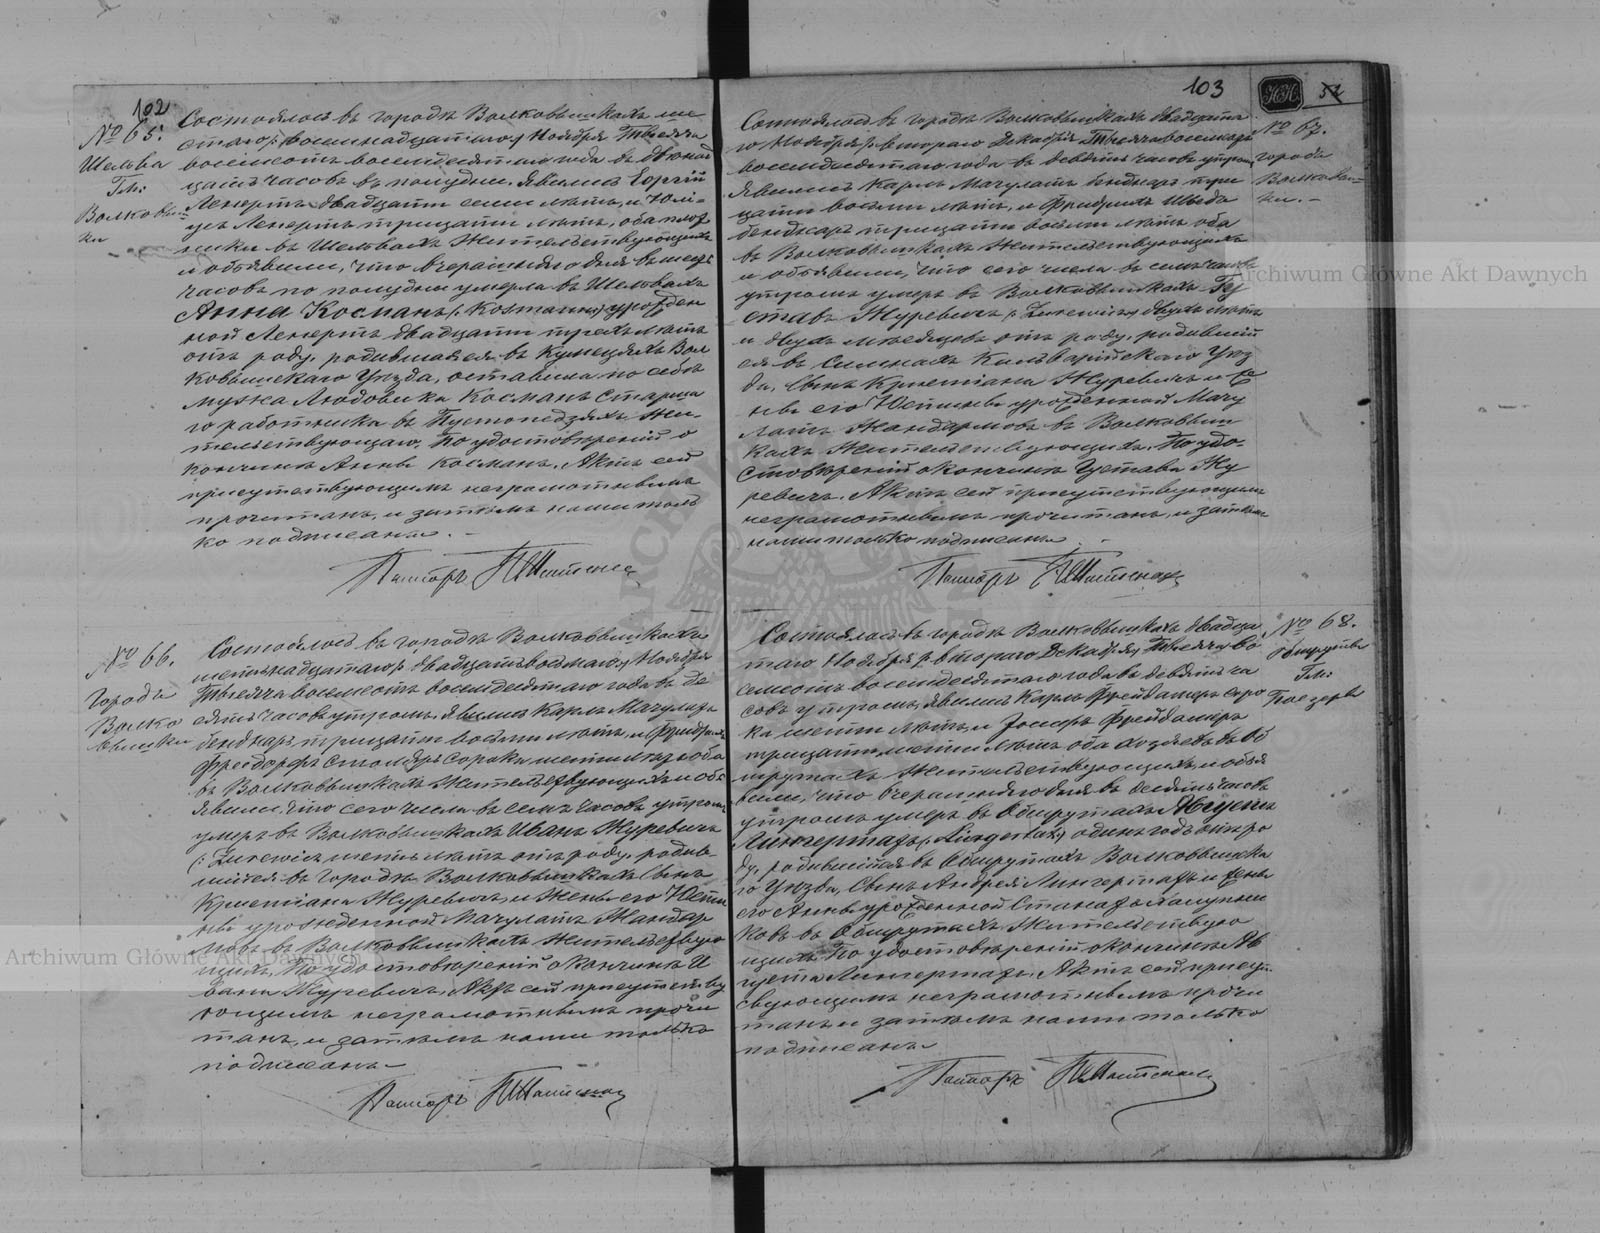 102
№ 65.
Шельва
Гм:
Волковыш=
ки
Состоялось въ городѣ Волковышкахъ ше
стаго /: восемнадцатаго :/ Ноября Тысяча
восемсотъ восемдесятаго года въ двѣнад
цать часовъ въ полудни. Явились Еоргій
Ленертъ двадцати семи лѣтъ, и Юлі=
усъ Ленертъ тридцати лѣтъ, оба плот
ники въ Шельвахъ жительствующіе
и объявили, что вчерашняго дня въ шесть
часовъ по полудни умерла въ Шельвахъ
Анна Косманъ (: Kosmann :) урожден
ной Ленертъ двадцати трехъ лѣтъ
отъ роду, родившаяся въ Кунецяхъ Вол
ковышскаго Уѣзда, оставила по себѣ
мужа Людовика Космана старша
го работника въ Пустопедзяхъ жи=
тельствующаго. По удостовѣреніи о
кончинѣ Анны Косманъ. Актъ сей
присутствующимъ неграмотнымъ
прочитанъ, и затѣмъ нами толь
ко подписанъ. -
Пасторъ
№ 66.
Городъ
Волко
вышки
Состоялось въ городѣ Волковышкахъ
шестнадцатаго /: двадцать восьмаго :/ Ноября
Тысяча восемсотъ восемдесятаго года въ де
сять часовъ утромъ, явились Карлъ Мачулатъ
бенднаръ тридцати восьми лѣтъ, и Фридрихъ
Фрейдорфъ столяръ сорока шести лѣтъ оба
въ Волковышкахъ жительствующіе и объ
явили, что сего числа въ семь часовъ утромъ
умеръ въ Волковышкахъ Иванъ Журевичъ
(: Żurewicz шесть лѣтъ отъ роду, родив=
шійся въ городѣ Волковышкахъ сынъ
Христіана Журевичъ, и жены его Юсти
ны урожденной Мачулатъ Жандар
мовъ въ Волковышкахъ жительствую
щихъ. По удостовѣреніи о кончинѣ И
вана Журевичъ, Актъ сей присутству
ющимъ неграмотнымъ прочи
танъ, и затѣмъ нами только
подписанъ -
Пасторъ
103
НН
51
№ 67.
городъ
Волковыш=
ки. -
Состоялось въ городѣ Волковышкахъ двадцата
го Ноября /: втораго Декабря :/ Тысяча восемсотъ
восемдесятаго года въ девять часовъ утромъ
явились Карлъ Мачулатъ бенднаръ три
дцати восьми лѣтъ, и Фридрихъ Швида
бенднаръ тридцати восьми лѣтъ оба
въ Волковышкахъ жительствующіе
и объявили, что сего числа въ семь часовъ
утромъ умеръ въ Волковышкахъ Гу
ставъ Журевичъ (: Żurewicz :) двухъ лѣтъ
и двухъ мѣсяцевъ отъ роду, родившій
ся въ Симнахъ Кальварійскаго Уѣз
да, сынъ Христіана Журевичъ и же
ны его Юстины урожденной Мачу
латъ Жандармовъ въ Волковыш
кахъ жительствующихъ. По удо=
стовѣреніи о кончинѣ Густава Жу
ревичъ. Актъ сей присутствующимъ
неграмотнымъ прочитанъ, и затѣмъ
нами только подписанъ -
Пасторъ
№ 68.
Обшруты
Гм:
Поезеры
Состоялось въ городѣ Волковышкахъ двадца
таго Ноября /: втораго Декабря :/ Тысяча во
семсотъ восемдесятаго года въ девять ча
совъ утромъ, явились Карлъ Фрейдамеръ соро
ка шести лѣтъ, и Іосифъ Фрейдамеръ
тридцати шести лѣтъ оба хозяева въ Об
шрутахъ жительствующіе, и объя
вили, что вчерашняго дня въ десять часовъ
утромъ умеръ въ Обшрутахъ Августъ
Лингертатъ (: Lingertat :) одинъ годъ отъ ро
ду, родившійся въ Обшрутахъ Волковышска
го Уѣзда, сынъ Андрея Лингертатъ и жены
его Анны урожденной
въ Обшрутахъ жительствую
щихъ. По удостовѣреніи о кончинѣ Ав
густа Лингертатъ, Актъ сей присут
ствующимъ неграмотнымъ прочи
танъ и затѣмъ нами только
подписанъ
Пасторъ
Archiwum Główne Akt Dawnych
Archiwum Główne Akt Dawnych